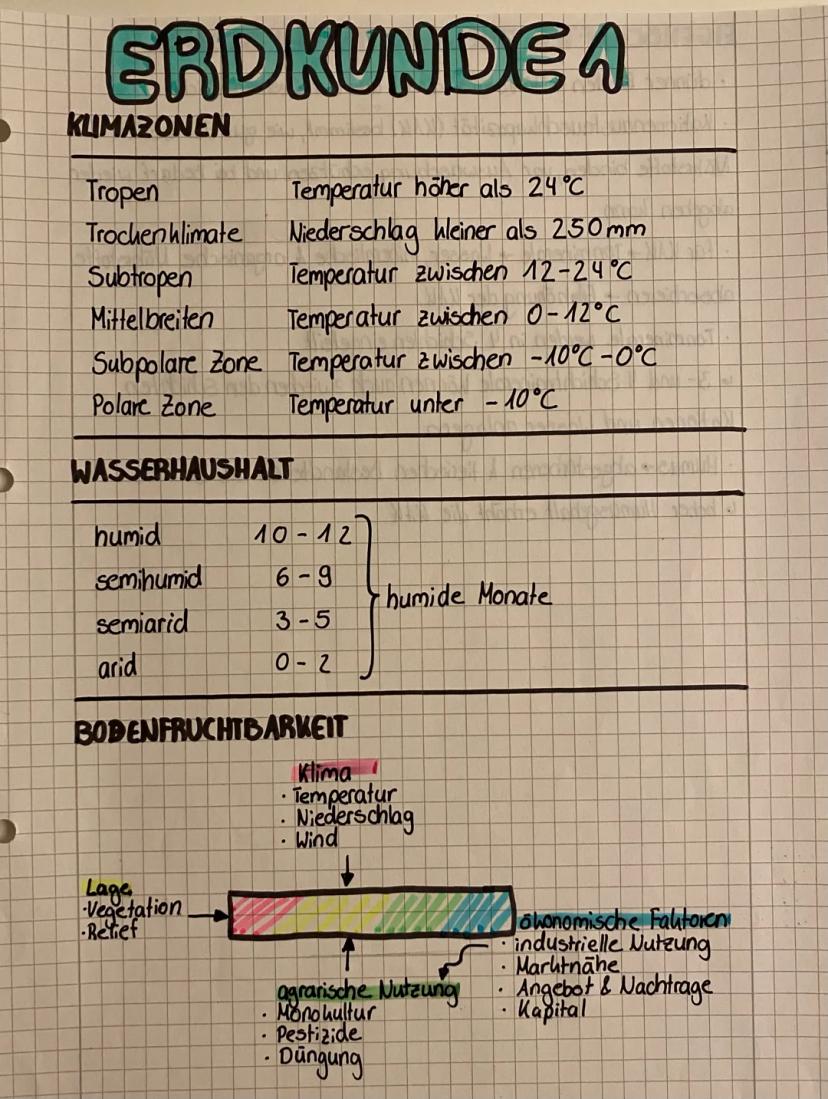 ERDKUNDE 1
KLIMAZONEN
Tropen Temperatur höher als 24°C
Trockenklimate Niederschlag kleiner als 250mm
Subtropen Temperatur zwischen 12-24°C
Mittelbreiten Temperatur zwischen 0-12°C
Subpolare Zone Temperatur zwischen -10°C -0°C
Polare Zone Temperatur unter -10°C
WASSERHAUSHALT
humid 10-12
semihumid 6-9
humide Monate
semiarid 3-5
arid 0-2
BODENFRUCHTBARKEIT
Klima
· Temperatur
· Niederschlag
· Wind
Lage
· Vegetation
· Relief
ökonomische Faktoren
· industrielle Nutzung
· Marktnähe
· Angebot & Nachfrage
· Kapital
agrarische Nutzung
· Monokultur
· Pestizide
· Düngung